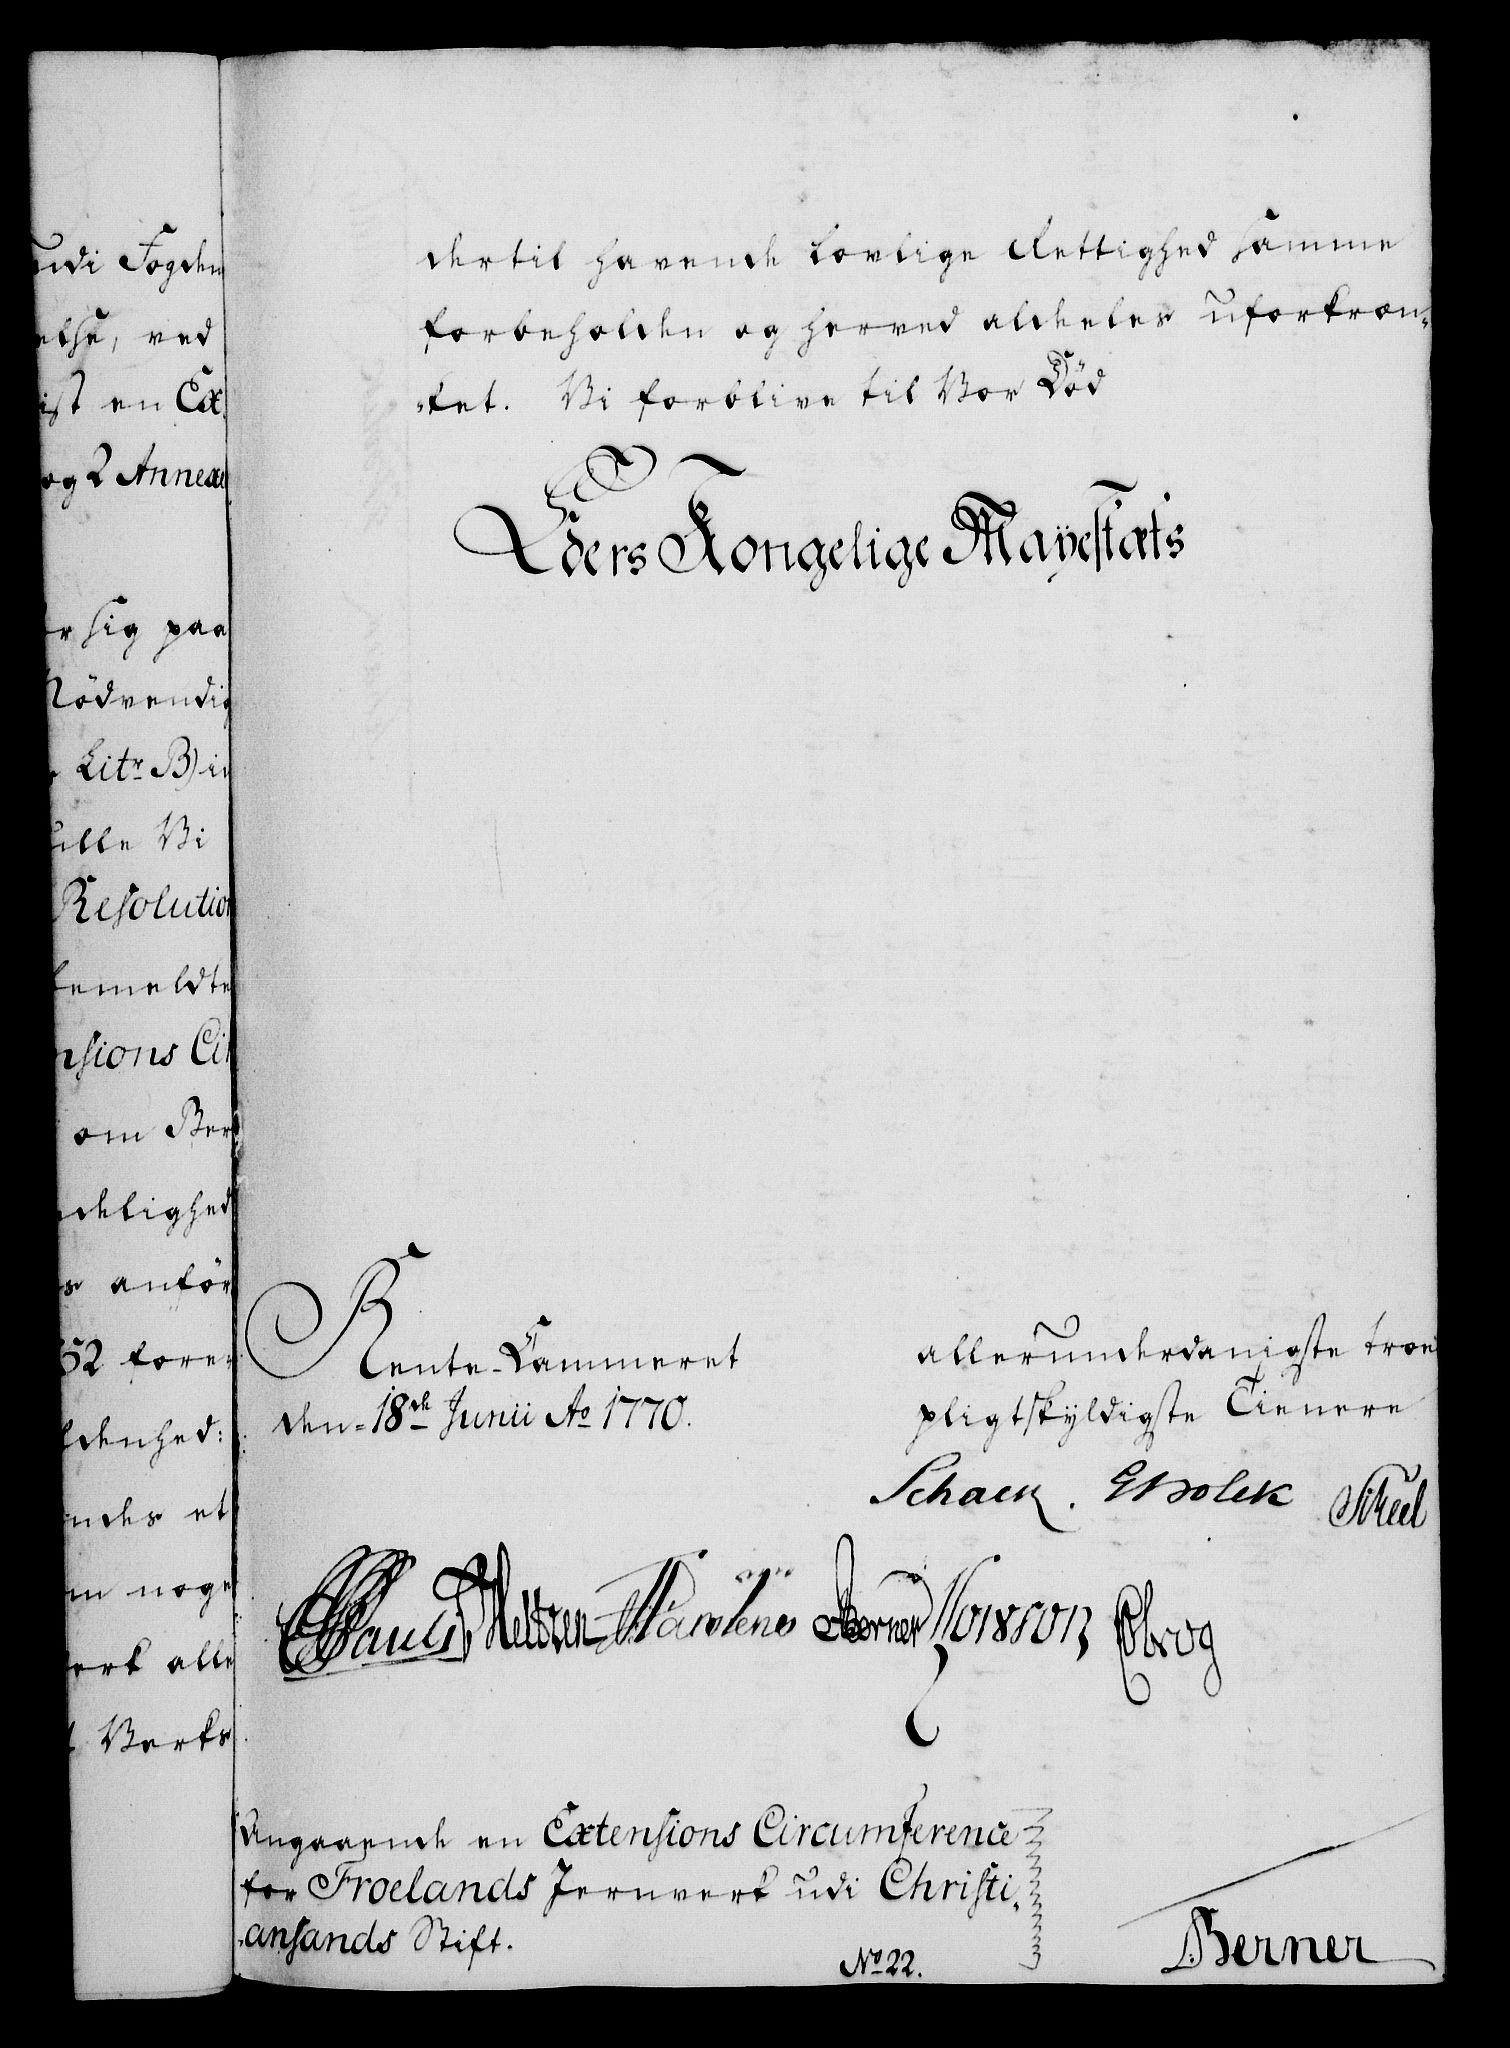 udi Fogden
else, ved
ist en Ex
og 2 Annexe
er sig paa
Nödvendig
Litr B) in
ille Vi
Resolution
bemeldte
nsions Cir
om Ber
delighed
s anför
52 fore
ldenhed:
ndes et
m noge
erk alle
t Verks
dertil havende lovlige Rettighed samme
forbeholden og herved aldeles uforkræn„
„ket. Vi forblive til Vor Död
Eders Kongelige Mayestæts
Rente-Cammeret
den 18de Junii Ao 1770.
allerunderdanigste troe
pligtskyldigste Tienere
Schack. GHolck Skeel
Pauli Meltzen Berner Ebrog
Angaaende en Extensions Circumference
for Froelands Jernverk udi Christi„
„ansands Stift.
No 22.
Berner